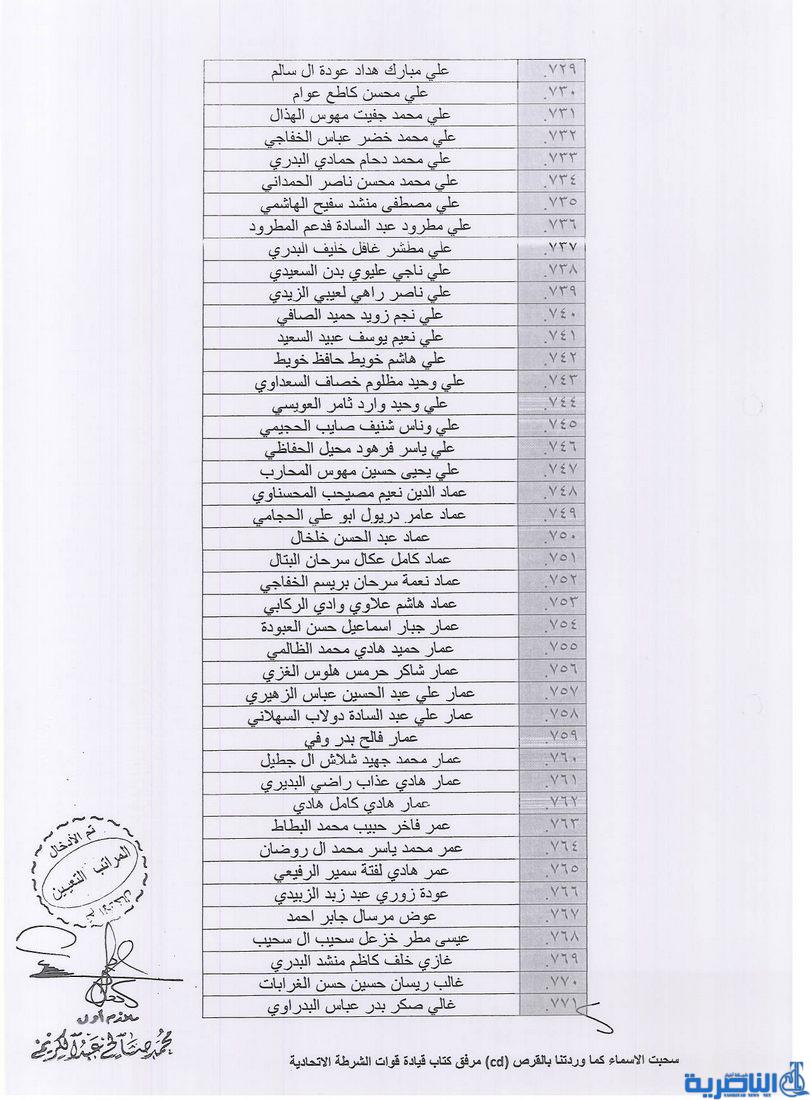 ٧٢٩. علي مبارك هداد عودة ال سالم
٧٣٠. علي محسن كاطع عوام
٧٣١. علي محمد جفيت مهوس الهذال
٧٣٢. علي محمد خضر عباس الخفاجي
٧٣٣. علي محمد دحام حمادي البدري
٧٣٤. علي محمد محسن ناصر الحمداني
٧٣٥. علي مصطفى منشد سفيح الهاشمي
٧٣٦. علي مطرود عبد السادة فدعم المطرود
٧٣٧. علي مطشر غافل خليف البدري
٧٣٨. علي ناجي عليوي بدن السعيدي
٧٣٩. علي ناصر راهي لعيبي الزيدي
٧٤٠. علي نجم زويد حميد الصافي
٧٤١. علي نعيم يوسف عبيد السعيد
٧٤٢. علي هاشم خويط حافظ خويط
٧٤٣. علي وحيد مظلوم خصاف السعداوي
٧٤٤. علي وحيد وارد ثامر العويسي
٧٤٥. علي وناس شنيف صايب الحجيمي
٧٤٦. علي ياسر فرهود محيل الحفاظي
٧٤٧. علي يحيى حسين مهوس المحارب
٧٤٨. عماد الدين نعيم مصيحب المحسناوي
٧٤٩. عماد عامر دريول ابو علي الحجامي
٧٥٠. عماد عبد الحسن خلخال
٧٥١. عماد كامل عكال سرحان البتال
٧٥٢. عماد نعمة سرحان بريسم الخفاجي
٧٥٣. عماد هاشم علاوي وادي الركابي
٧٥٤. عمار جبار اسماعيل حسن العبودة
٧٥٥. عمار حميد هادي محمد الظالمي
٧٥٦. عمار شاكر حرمس هلوس الغزي
٧٥٧. عمار علي عبد الحسين عباس الزهيري
٧٥٨. عمار علي عبد السادة دولاب السهلاني
٧٥٩. عمار فالح بدر وفي
٧٦٠. عمار محمد جهيد شلاش ال جطيل
٧٦١. عمار هادي عذاب راضي البديري
٧٦٢. عمار هادي كامل هادي
٧٦٣. عمر فاخر حبيب محمد البطاط
٧٦٤. عمر محمد ياسر محمد ال روضان
٧٦٥. عمر هادي لفتة سمير الرفيعي
٧٦٦. عودة زوري عبد زبد الزبيدي
٧٦٧. عوض مرسال جابر احمد
٧٦٨. عيسى مطر خزعل سحيب ال سحيب
٧٦٩. غازي خلف كاظم منشد البدري
٧٧٠. غالب ريسان حسين حسن الغرابات
٧٧١. غالي صكر بدر عباس البدراوي
تم الأدخال
المراتب التعيين
ملازم أول
محمد صالح عبد الكريم
سحبت الاسماء كما وردتنا بالقرص (cd) مرفق كتاب قيادة قوات الشرطة الاتحادية
شبكة أخبار
الناصرية
NASIRIYAH NEWS NET